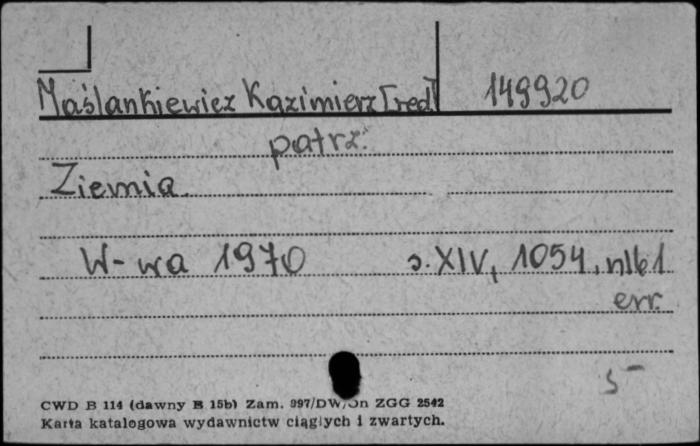 Maślankiewicz Kazimierz [red] 149920
patrz:
Ziemia
W-wa 1970 s. XIV, 1054, nlb1
err.
5
CWD B 114 (dawny B 15b) Zam. 997/DW/On ZGG 2542
Karta katalogowa wydawnictw ciągłych i zwartych.